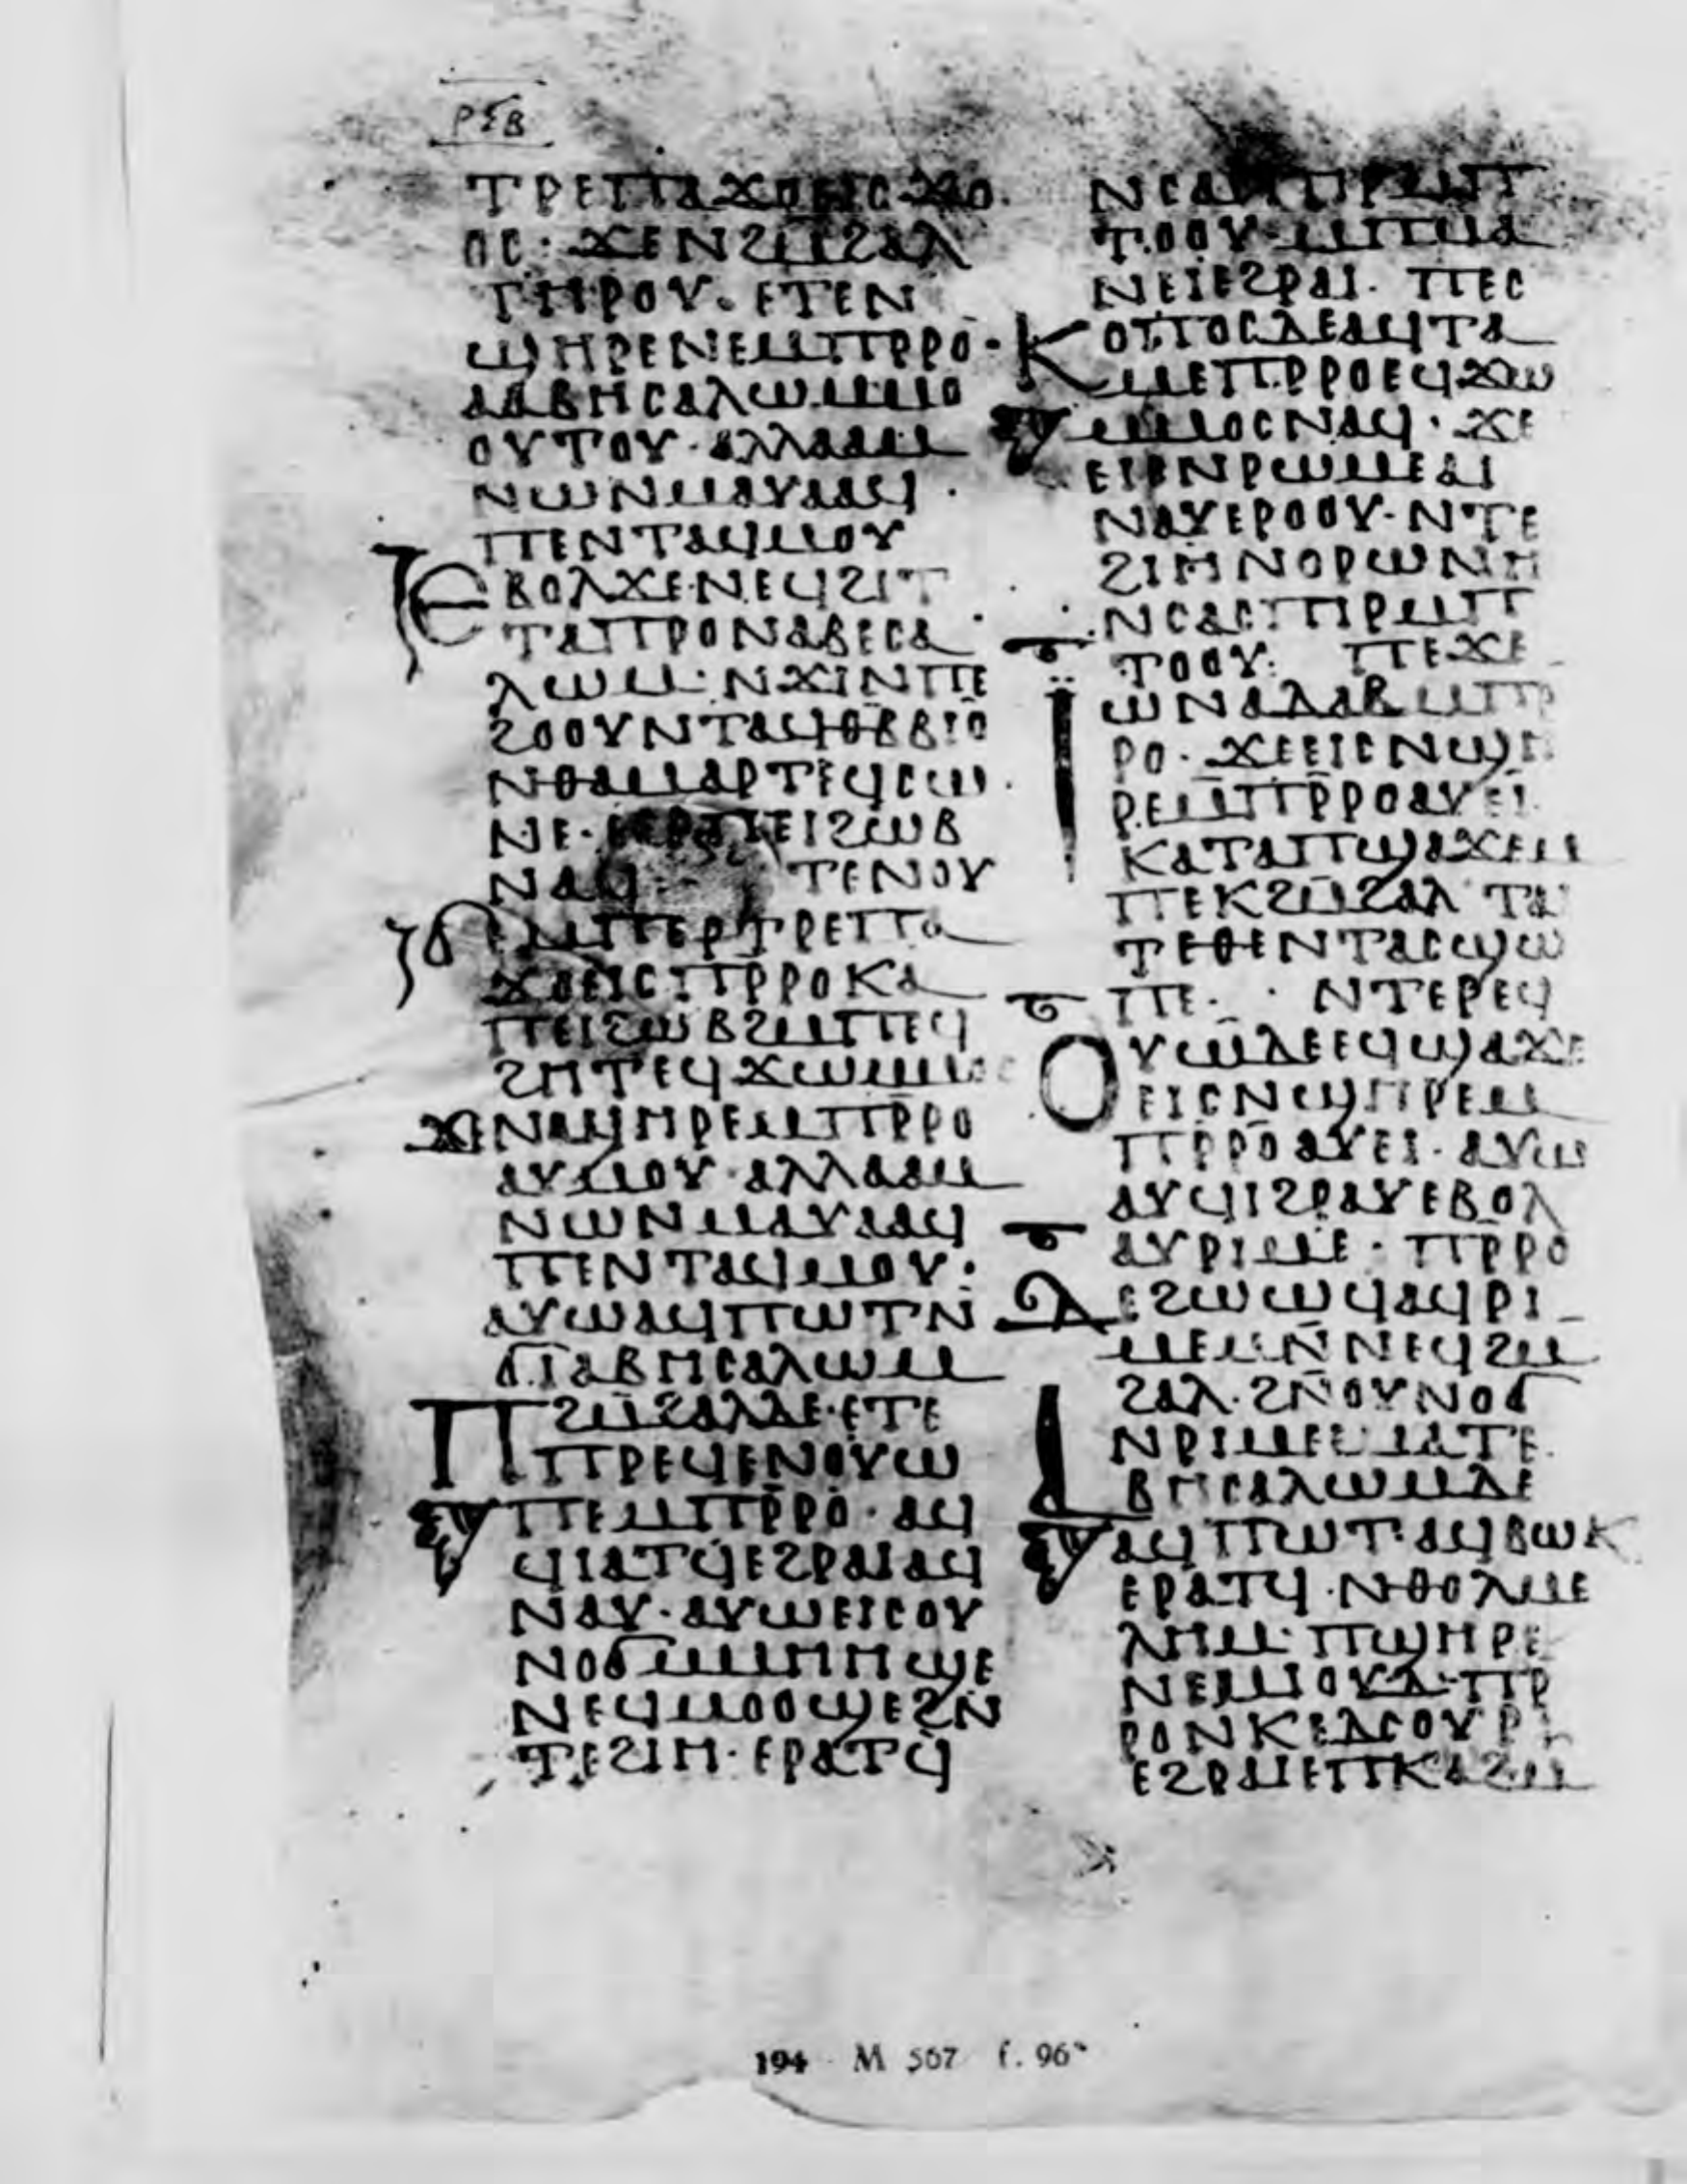 ⲢϤⲂ
ⲦⲢⲈⲠⲀϪⲞⲈⲒⲤϪⲞ
ⲞⲤ· ϪⲈⲚϨⲘϨⲀⲖ
ⲦⲎⲢⲞⲨ· ⲈⲦⲈⲚ
ϢⲎⲢⲈⲚⲈⲘⲠⲢⲢⲞ·
ⲀⲀⲂⲎⲤⲀⲖⲰⲘⲘⲞ
ⲞⲨⲦⲞⲨ·ⲀⲖⲖⲀⲀⲘ
ⲚⲰⲚⲘⲀⲨⲀⲀϤ·
ⲠⲈⲚⲦⲀϤⲘⲞⲨ
ⲈⲂⲞⲖϪⲈⲚⲈϤϨⲒⲦ
ⲦⲀⲠⲢⲞⲚⲀⲂⲈⲤⲀ
ⲖⲰⲘ·ⲚϪⲒⲚⲠⲈ
ϨⲞⲞⲨⲚⲦⲀϤⲐⲂⲂⲒⲞ
ⲚⲐⲀⲘⲀⲢⲦⲈϤⲤⲰ
ⲚⲈ· ⲠⲈⲒϨⲰⲂ
ⲚⲀϤ· ⲦⲈⲚⲞⲨ
ϬⲈⲘⲠⲈⲢⲦⲢⲈⲠⲀ
ϪⲞⲈⲒⲤⲠⲢⲢⲞⲔⲀ
ⲠⲈⲒϨⲰⲂϨⲘⲠⲈϤ
ϨⲎⲦⲈϤϪⲰⲘⲘⲞⲤ
ϪⲈⲚⲀϢⲎⲢⲈⲘⲠⲢⲢⲞ
ⲀⲨⲘⲞⲨ·ⲀⲖⲖⲀⲀⲘ
ⲚⲰⲚⲘⲀⲨⲀⲀϤ
ⲠⲈⲚⲦⲀϤⲘⲞⲨ:
ⲀⲨⲰⲀϤⲠⲰⲦⲚ
ϬⲒⲀⲂⲎⲤⲀⲖⲰⲘ
ⲠϨⲘϨⲀⲖⲆⲈ·ⲈⲦⲈ
ⲠⲢⲈϤϤⲈⲚⲞⲨⲰ
ⲠⲈⲘⲠⲢⲢⲞ·ⲀϤ
ϤⲒⲀⲦϤⲈϨⲢⲀⲒⲀϤ
ⲚⲀⲨ·ⲀⲨⲰⲈⲒⲤⲞⲨ
ⲚⲞϬⲘⲘⲎⲎϢⲈ
ⲚⲈϤⲘⲞⲞϢⲈϨⲚ
ⲦⲈϨⲒⲎ·ⲈⲢⲀⲦϤ
ⲚⲤⲀⲤⲠⲒⲢⲘⲠ
ⲦⲞⲞⲨ·ⲘⲠⲘⲀ
ⲚⲈⲒⲈϨⲢⲀⲒ· ⲠⲈⲤ
ⲔⲞⲠⲞⲤⲆⲈⲀϤⲦⲀ
ⲘⲈⲠⲢⲢⲞⲈϤϪⲰ
ⲘⲘⲞⲤⲚⲀϤ· ϪⲈ
ⲈⲒⲤⲚⲢⲰⲘⲈⲀⲒ
ⲚⲀⲨⲈⲢⲞⲞⲨ·ⲚⲦⲈ
ϨⲒⲎⲚⲞⲢⲰⲚⲎ
ⲚⲤⲀⲤⲠⲒⲢⲘⲠ
ⲦⲞⲞⲨ: ⲠⲈϪⲈ
ⲒⲰⲚⲀⲆⲀⲂⲘⲠⲢ
ⲢⲞ·ϪⲈⲈⲒⲤⲚϢⲎ
ⲢⲈⲘⲠⲢⲢⲞⲀⲨⲈⲒ
ⲔⲀⲦⲀⲠϢⲀϪⲈⲘ
ⲠⲈⲔϨⲘϨⲀⲖ ⲦⲀ
ⲦⲈⲐⲈⲚⲦⲀⲤϢⲰ
ⲠⲈ· ⲚⲦⲈⲢⲈϤ
ⲞⲨⲰⲆⲈⲈϤϢⲀϪⲈ
ⲈⲒⲤⲚϢⲎⲢⲈⲘ
ⲠⲢⲢⲞⲀⲨⲈⲒ·ⲀⲨⲰ
ⲀⲨϤⲒϨⲢⲀⲨⲈⲂⲞⲖ
ⲀⲨⲢⲒⲘⲈ·ⲠⲢⲢⲞ
ⲆⲈϨⲰⲰϤⲀϤⲢⲒ
ⲘⲈⲘⲚⲚⲈϤϨⲘ
ϨⲀⲖ·ϨⲚⲞⲨⲚⲞϬ
ⲚⲢⲒⲘⲈⲈⲘⲀⲦⲈ·
ⲀⲂⲎⲤⲀⲖⲰⲘⲆⲈ
ⲀϤⲠⲰⲦ·ⲀϤⲂⲰⲔ
ⲈⲢⲀⲦϤ·ⲚⲐⲞⲖⲘⲈ
ⲖⲎⲘ·ⲠϢⲎⲢⲈ
ⲚⲈⲘⲒⲞⲨⲆ·ⲠⲢ
ⲢⲞⲚⲔⲈⲆⲤⲞⲨⲢ
ⲈϨⲢⲀⲒⲈⲠⲔⲀϨⲘ
194 M 567 f. 96ᵛ